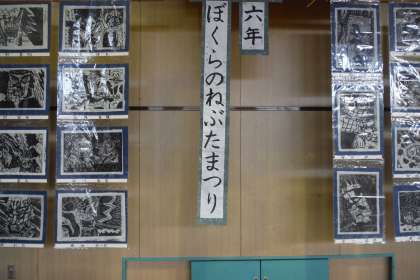 六年
ぼくらのねぶたまつり